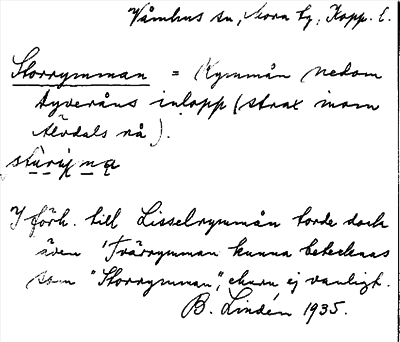 Våmhus sn, Mora tg, Kopp. l.
Storrymman = Rymmån nedom
tyveråns inlopp (strax inom
Älvdals rå).
I förh. till Lisselrymmån torde dock
även Tvärrymman kunna betecknas
som "Storrymman", ehuru ej vanligt.
B. Lindén 1935.